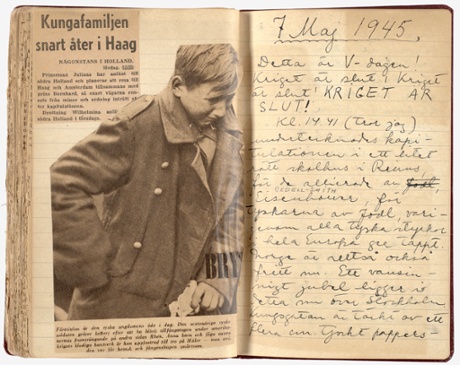 Kungafamiljen
snart åter i Haag
NÅGONSTANS I HOLLAND,
Prinsessan Juliana har anlänt till
södra Holland och planerar att resa till
Haag och Amsterdam tillsammans med
prins Bernhard, så snart vägarna
rensats från minor och ordning inträtt
efter kapitulationen.
Drottning Wilhelmina
södra Holland i
BR
Förvirring är den tyska ungdomens öde i dag. Den
7 Maj 1945.
Detta är V-dagen!
Kriget är slut! Kriget
är slut! KRIGET ÄR
SLUT!
Kl. 14.41 (tror jag)
undertecknades kapi-
tulationen i ett litet
rött skolhus i Reims,
för de allierade av
BEDELL-SMITH
Eisenhower, för
tyskarna av Jodl, vari-
genom alla tyska styrkor
i hela Europa ge tappt.
Norge är alltså också
fritt nu. Ett vansin-
nigt jubel ligger i
detta nu över Stockholm.
Kungsgatan är täckt av ett
flera cm tjockt pappers-